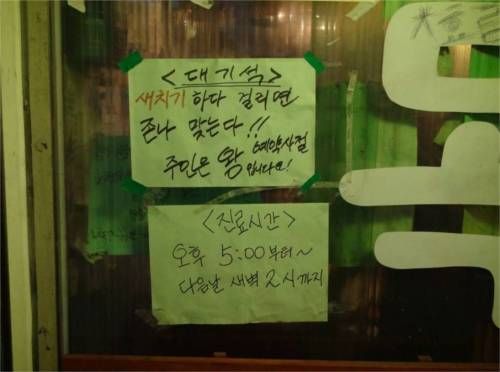 <대기석>
새치기 하다 걸리면
존나 맞는다!!
주인은 왕 예약사절
입니다요!
<진료시간>
오후 5:00부터~
다음날 새벽 2시까지